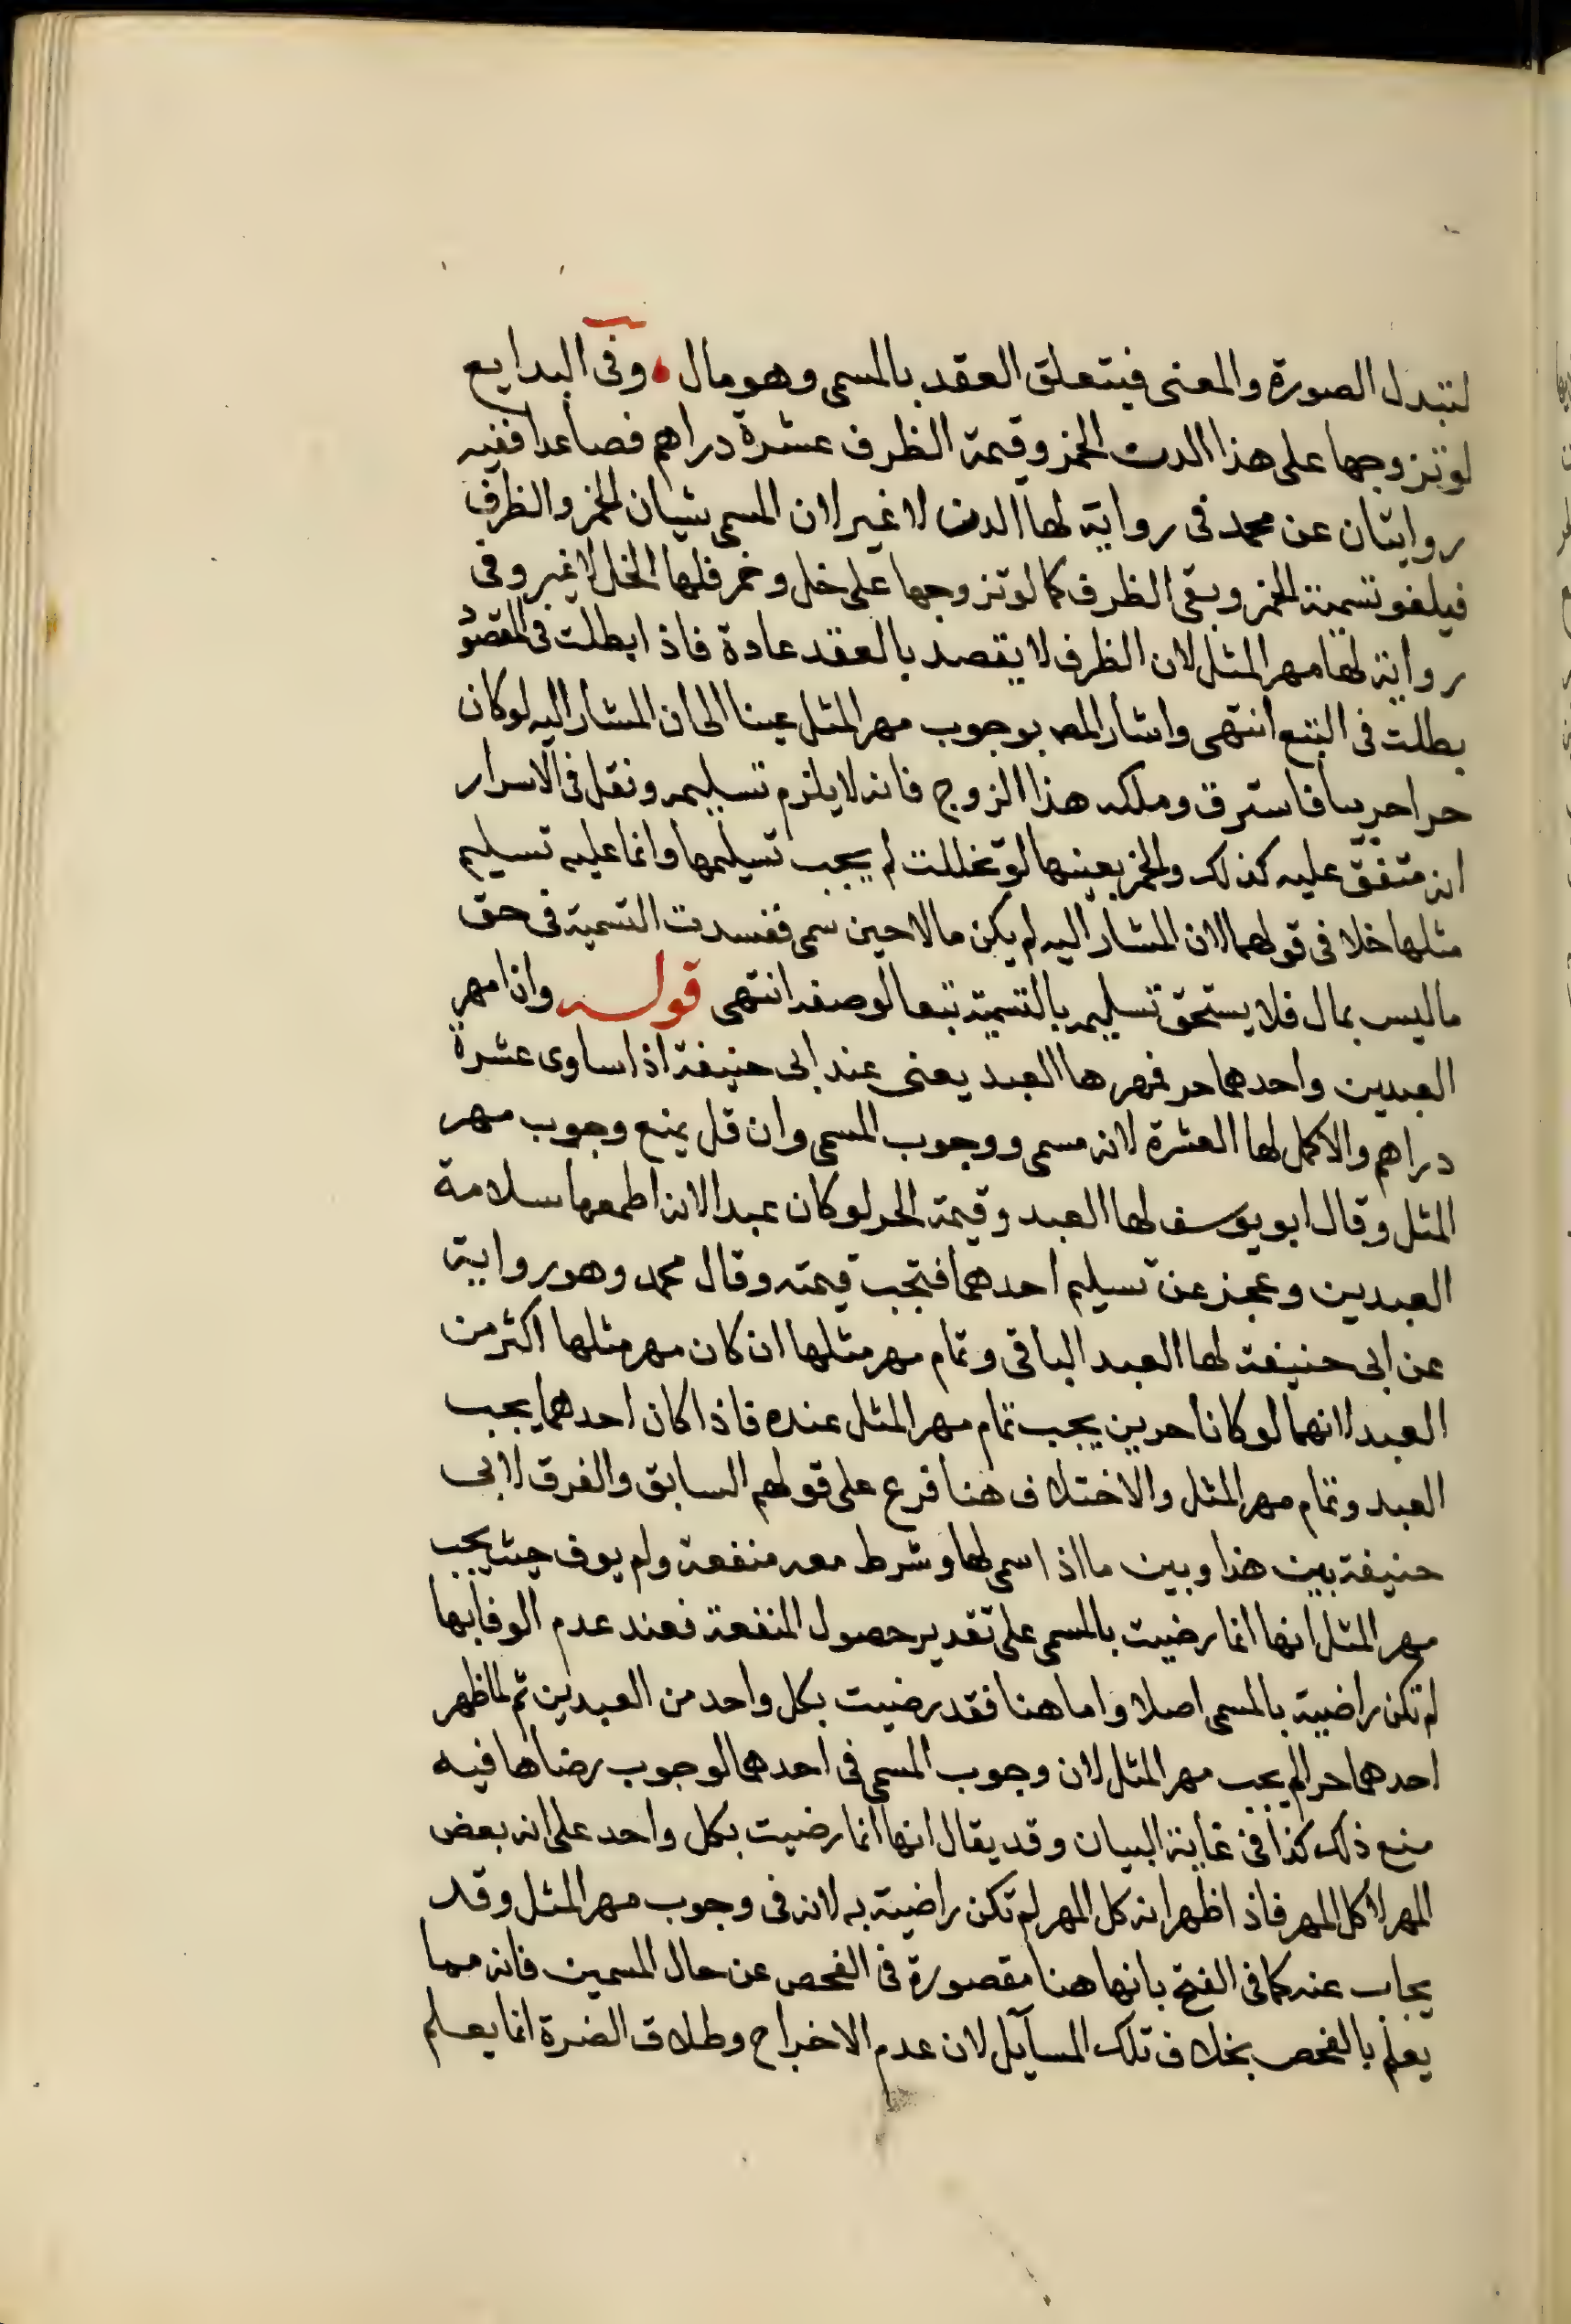 لتبدل الصورة والمعنى فيتعلق العقد بالمسمى وهو مال وفى البدايع
لو تزوجها على هذا الدن الخمر وقيمة الظرف عشرة دراهم فصاعدا ففيه
روايتان عن محمد فى رواية لها الدن لا غير لان المسمى شيان الخمر والظرف
فيلغو تسمية الخمر وبقى الظرف كما لو تزوجها على خل وخمر فلها الخل لا غير وفى
رواية لها مهر المثل لان الظرف لا يقصد بالعقد عادة فاذا بطلت فى المقصود
بطلت فى التبع انتهى واشار المص بوجوب مهر المثل عينا الى ان المشار اليه لو كان
حرا حربيا فاسترق وملكه هذا الزوج فانه لا يلزم تسليمه ونقل فى الاسرار
انه متفق عليه كذلك والخمر بعينها لو تخللت لم يجب تسليمها وانما عليه تسليم
مثلها خلا فى قولهما لان المشار اليه لم يكن مالا حين سمى ففسدت التسمية فى حق
ما ليس بمال فلا يستحق تسليمه بالتسمية تبعا لوصفه انتهى قوله واذا امهر
العبدين واحدهما حر فمهرها العبد يعنى عند ابى حنيفة اذا ساوى عشرة
دراهم والا كمل لها العشرة لانه مسمى ووجوب المسمى وان قل يمنع وجوب مهر
المثل وقال ابو يوسف لها العبد وقيمة الحر لو كان عبدا لانه اطمعها سلامة
العبدين وعجز عن تسليم احدهما فتجب قيمته وقال محمد وهو رواية
عن ابى حنيفة لها العبد الباقى وتمام مهر مثلها ان كان مهر مثلها اكثر من
العبد لانهما لو كانا حرين يجب تمام مهر المثل عنده فاذا كان احدهما يجب
العبد وتمام مهر المثل والاختلاف هنا فرع على قولهم السابق والفرق لابى
حنيفة بين هذا وبين ما اذا سمى لها وشرط معه منفعة ولم يوف حيث يجب
مهر المثل انها انما رضيت بالمسمى على تقدير حصول المنفعة فعند عدم الوفا بها
لم تكن راضية بالمسمى اصلا واما هنا فقد رضيت بكل واحد من العبدين ثم لما ظهر
احدهما حرا لم يجب مهر المثل لان وجوب المسمى فى احدهما لوجوب رضاها فيه
منع ذلك كذا فى غاية البيان وقد يقال انها انما رضيت بكل واحد على انه بعض
المهر لا كل المهر فاذا ظهر انه كل المهر لم تكن راضية به لانه فى وجوب مهر المثل وقد
يجاب عنه كما فى الفتح بانها هنا مقصورة فى الفحص عن حال المسمين فانه مما
يعلم بالفحص بخلاف تلك المسآيل لان عدم الاخراج وطلاق الضرة انما يعلم